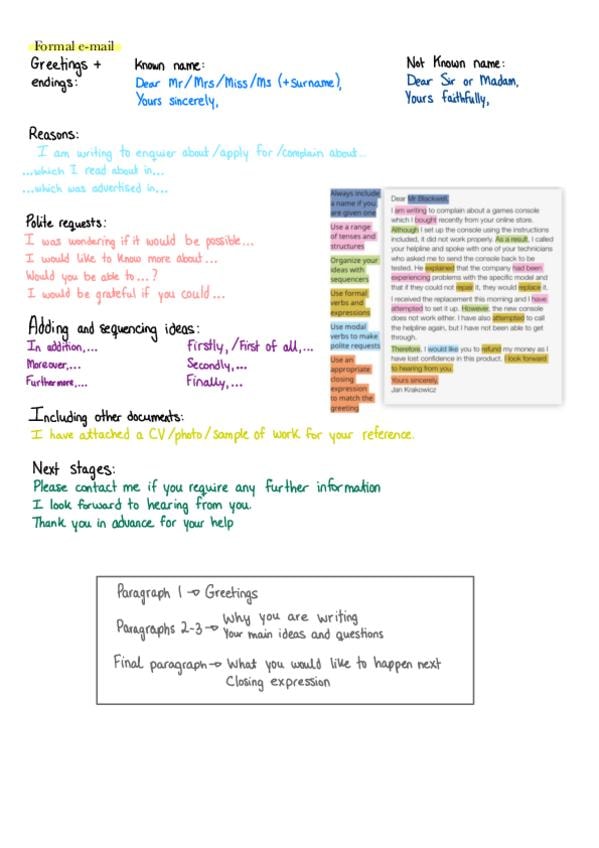 Formal e-mail
Greetings + endings:
Known name:
Dear Mr/Mrs/Miss/Ms (+surname),
Yours sincerely,
Not Known name:
Dear Sir or Madam,
Yours faithfully,
Reasons:
I am writing to enquier about/apply for/complain about..
...which I read about in...
...which was advertised in...
Polite requests:
I was wondering if it would be possible...
I would like to know more about...
Would you be able to...?
I would be grateful if you could...
Adding and sequencing ideas:
In addition,...
Moreover,...
Furthermore,...
Firstly, /First of all,...
Secondly,...
Finally,...
Always include
a name if you
are given one
Use a range
of tenses and
structures
Organize your
ideas with
sequencers
Use formal
verbs and
expressions
Use modal
verbs to make
polite requests
Use an
appropriate
closing
expression
to match the
greeting
Dear Mr Blackwell,
I am writing to complain about a games console
which I bought recently from your online store.
Although I set up the console using the instructions
included, it did not work properly. As a result, I called
your helpline and spoke with one of your technicians
who asked me to send the console back to be
tested. He explained that the company had been
experiencing problems with the specific model and
that if they could not repair it, they would replace it.
I received the replacement this morning and I have
attempted to set it up. However, the new console
does not work either. I have also attempted to call
the helpline again, but I have not been able to get
through.
Therefore, I would like you to refund my money as I
have lost confidence in this product. I look forward
to hearing from you.
Yours sincerely,
Jan Krakowicz
Including other documents:
I have attached a CV/photo/sample of work for your reference.
Next stages:
Please contact me if you require any further information
I look forward to hearing from you.
Thank you in advance for your help
Paragraph 1 → Greetings
Paragraphs 2-3 → Why you are writing
Your main ideas and questions
Final paragraph → What you would like to happen next
Closing expression